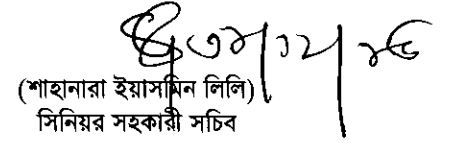 (শাহানারা ইয়াসমিন লিলি)
সিনিয়র সহকারী সচিব